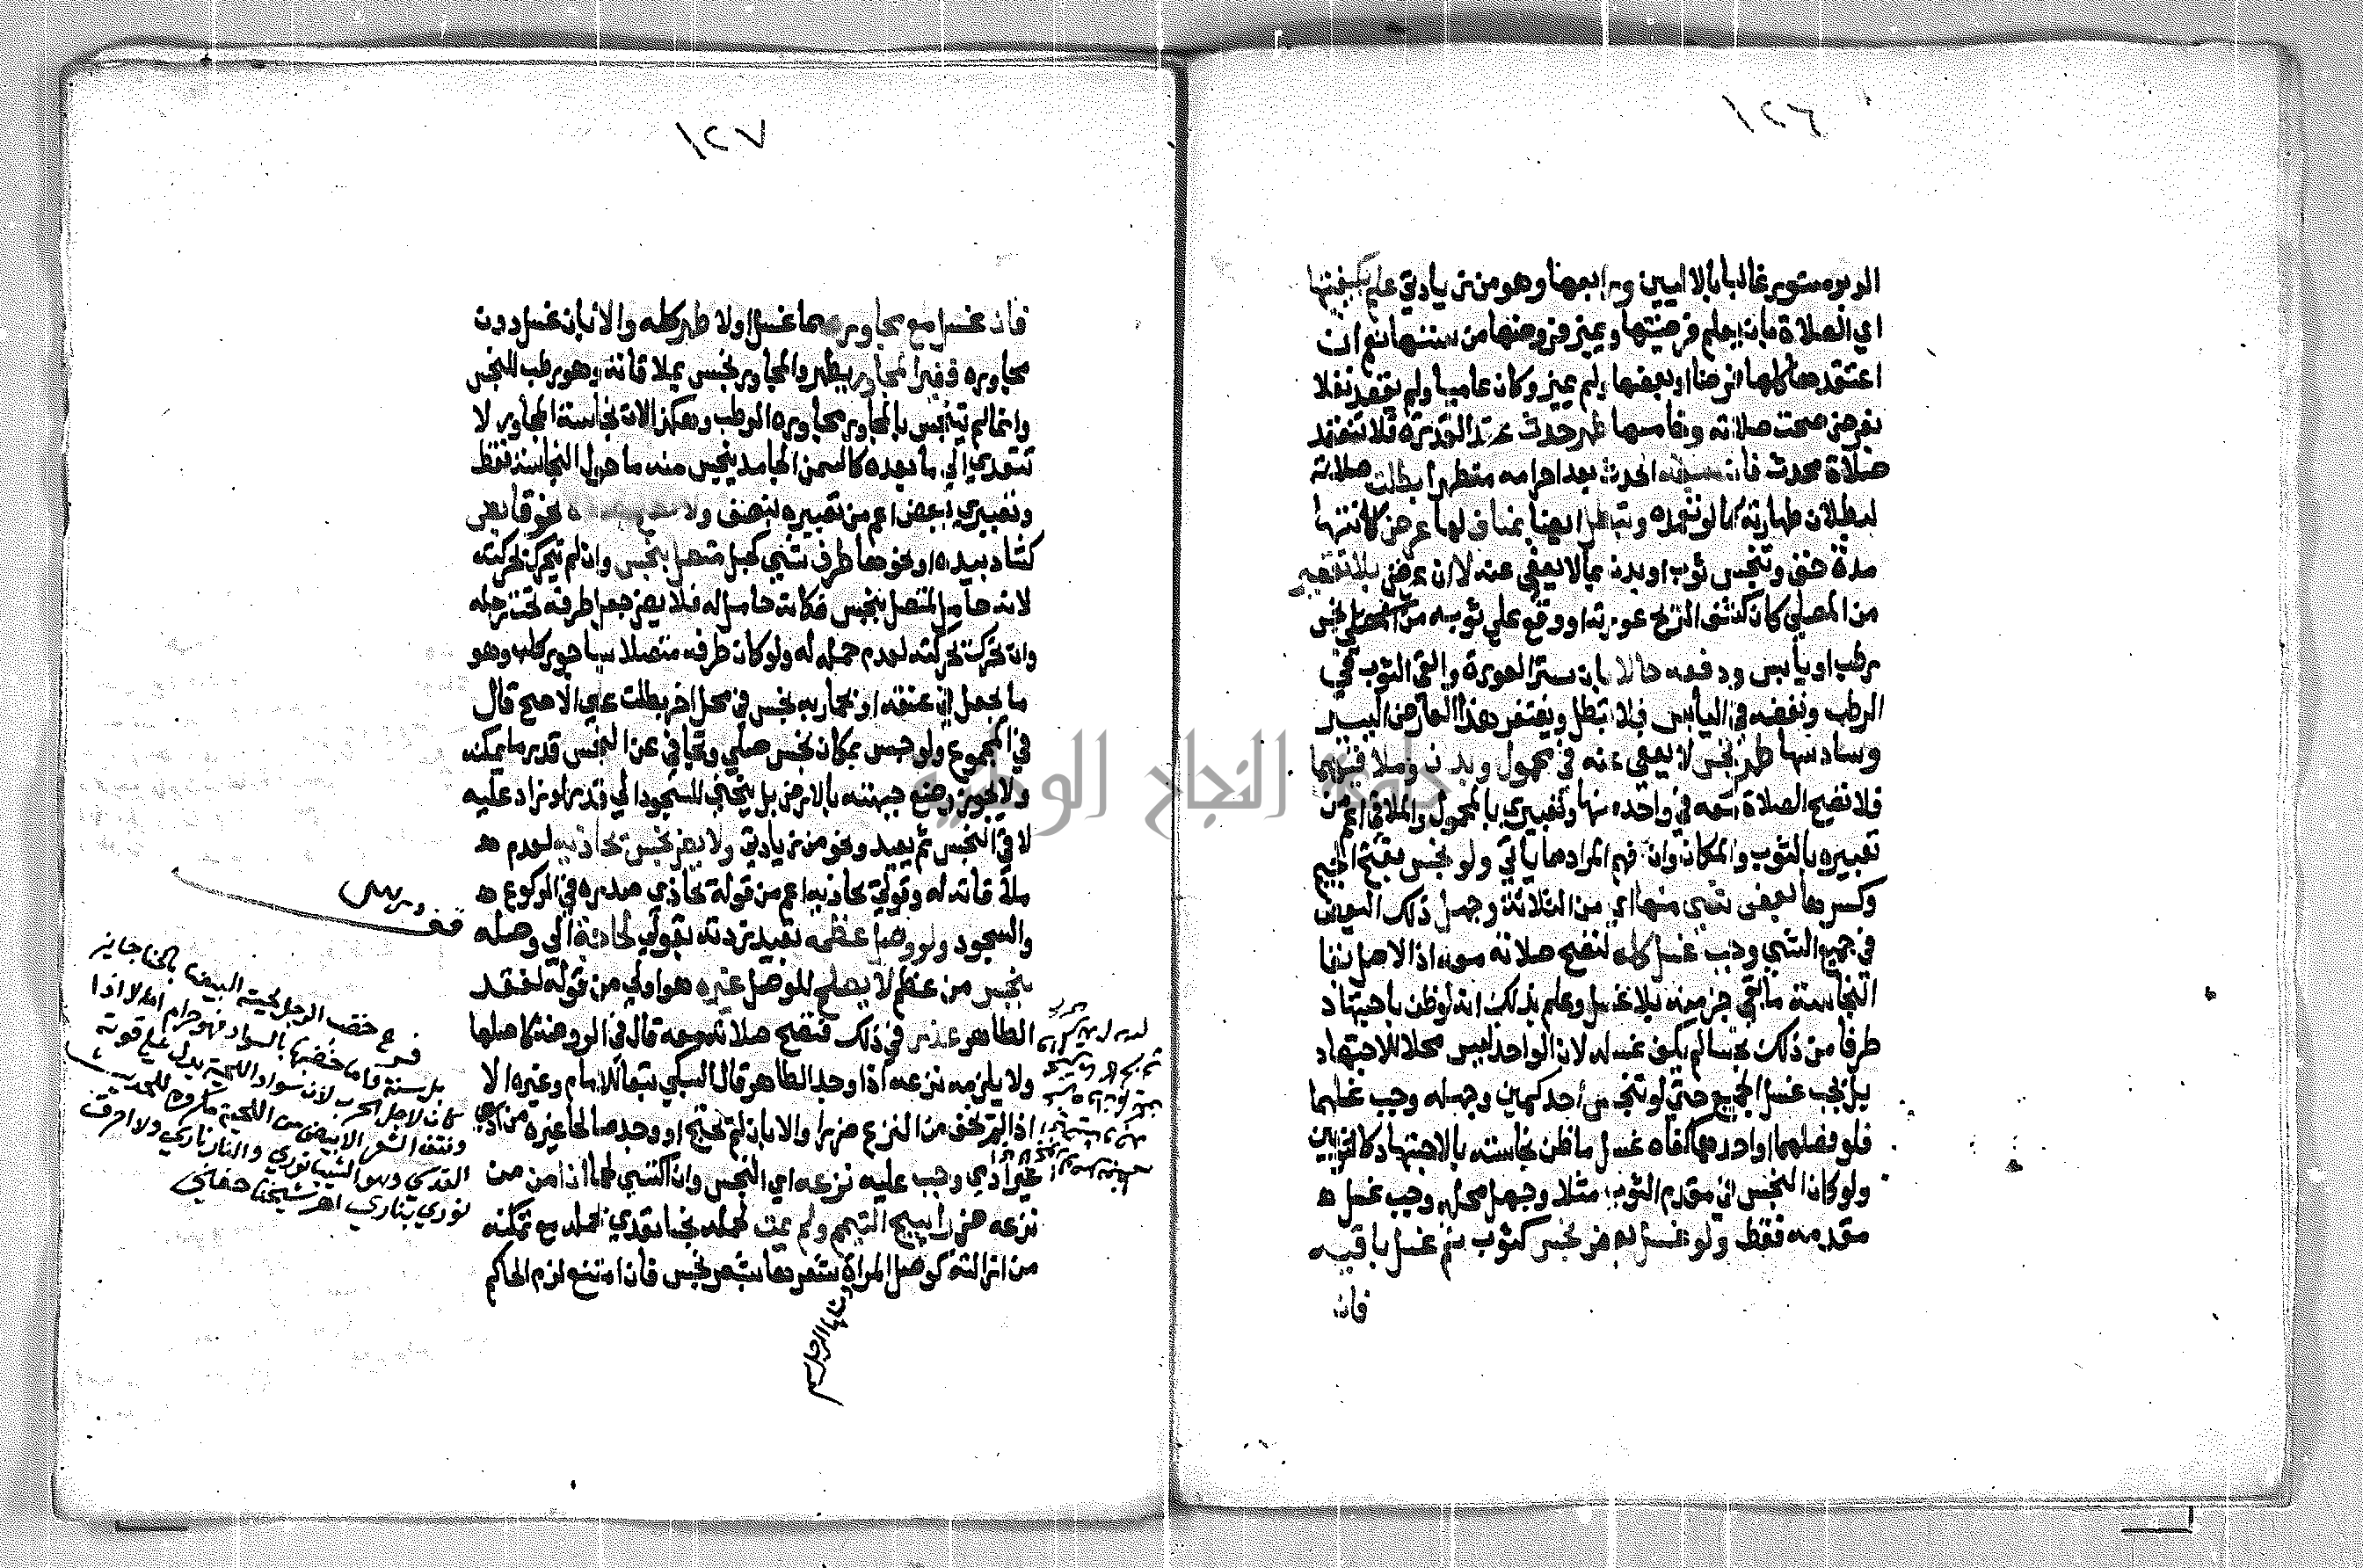 ١٢٦
الدبر مستور غالبا بالاليين ورابعها وهو من زيادتي علم بكيفيتها
اي الصلاة بان يعلم فرضيتها ويميز فروضها من سننها نعم ان
اعتقدها كلها فرضا او بعضها ولم يميز وكان عاميا ولم يقصد نفلا
بفرض صحت صلاته وخامسها طهر حدث عند القدرة فلا تنعقد
صلاة محدث فان سبقه الحدث بعد احرامه متطهرا بطلت صلاته
لبطلان طهارته كما لو تعمده وتبطل ايضا بمناف لها عرض كانتها
مدة خف وتنجس ثوب او بدن بما لا يعفى عنه لا ان عرض بلا تقصير
من المصلي كان كشف الريح عورته او وقع على ثوبه من المصلي نجس
رطب او يابس ودفعه حالا بان ستر العورة والقى الثوب في
الرطب ونفضه في اليابس فلا تبطل ويغتفر هذا العارض اليسير
وسادسها طهر نجس لا يعفى عنه في محمول وبدن وملاقيهما
فلا تصح الصلاة معه في واحد منها وتعبيري بالمحمول والملاقي اعم من
تعبيره بالثوب والمكان وان فهم المراد مما ياتي ولو نجس بفتح الجيم
وكسرها بعض شي منها اي من الثلاثة وجهل ذلك البعض
في جميع الشي وجب غسل كله لتصح صلاته معه اذ الاصل بقا
النجاسة ما بقي جزء منه بلا غسل وعلم بذلك انه لو ظن باجتهاد
طرفا من ذلك نجسا لم يكف غسله لان الواحد ليس محلا للاجتهاد
بل يجب غسل الجميع حتى لو تنجس احد كمين وجهله وجب غسلهما
فلو فصلهما او احدهما كفاه غسل ما ظن نجاسته بالاجتهاد كالثوبين
ولو كان النجس في مقدم الثوب مثلا وجهل محله وجب غسل
مقدمه فقط ولو غسل بعض نجس كثوب ثم غسل باقيه
فان
١٢٧
فان غسل مع مجاوره مما غسل اولا طهر كله والا بان غسل دون
مجاوره فغير المجاور يطهر والمجاور نجس بملاقاته وهو رطب للنجس
وانما لم يتنجس بالمجاور مجاوره الرطب وهكذا لان نجاسة المجاور لا
تتعدي الي ما بعده كالسمن الجامد ينجس منه ما حول النجاسة فقط
وتعبيري ببعض اعم من تعبيره بنصف ولا نحو قابض
كشاد بيده او نحوها طرف شي كحبل متصل بنجس وان لم يتحرك بحركته
لانه حامل لمتصل بنجس فكانه حامل له فلا يضر جعل طرفه تحت رجله
وان تحرك بحركته لعدم حمله له ولو كان طرفه متصلا بساجور كلب وهو
ما يجعل في عنقه او بحمار به نجس في محل اخر بطلت علي الاصح قال
في المجموع ولو حبس بمكان نجس صلي وتجافي عن النجس قدر ما يمكنه
ولا يجوز وضع جبهته بالارض بل ينحني للسجود الي قدر لو زاد عليه
لاقي النجس ثم يعيد وهو من زيادتي ولا يضر نجس يحاذيه لعدم
ملاقاته له وقولي يحاذيه اعم من قوله يحاذي صدره في الركوع
والسجود ولو وصل عظمه بقيد زدته بقولي لحاجة الي وصله
بنجس من عظم لا يصلح للوصل غيره هو اولي من قوله لفقد
الطاهر عذر في ذلك فتصح صلاته معه قال في الروضة كاصلها
ولا يلزمه نزعه اذا وجد الطاهر قال السبكي تبعا للامام وغيره الا
اذا لم يخف من النزع ضررا والا بان لم يحتج او وجد صالحا غيره من
غير ادمي وجب عليه نزعه اي النجس وان اكتسي لحما ان امن من
نزعه ضررا يبيح التيمم ولم يمت لحمله نجسا تعدي بحمله مع تمكنه
من ازالته كوصل المراة شعرها بشعر نجس فان امتنع لزم الحاكم
فرع خضب الرجل لحيته البيضا بالحنا جايز
بل سنة فاما خضبها بالسواد فهو حرام الا اذا
كان لاجل الحرب لان سواد اللحية يدل على قوته
ونتف الشعر الابيض من اللحية مكروه للحديث
القدسي وهو الشيب نوري والنار ناري ولا احرق
نوري بناري اهـ شيخنا حفني